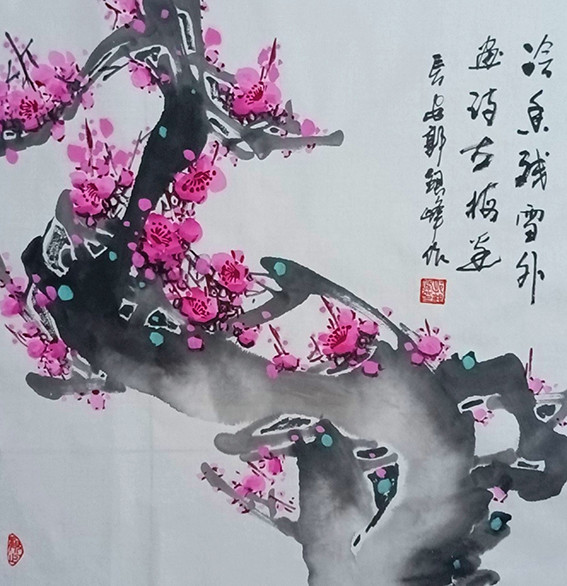 冷香残雪外
诗古梅边
长安郭银峰作